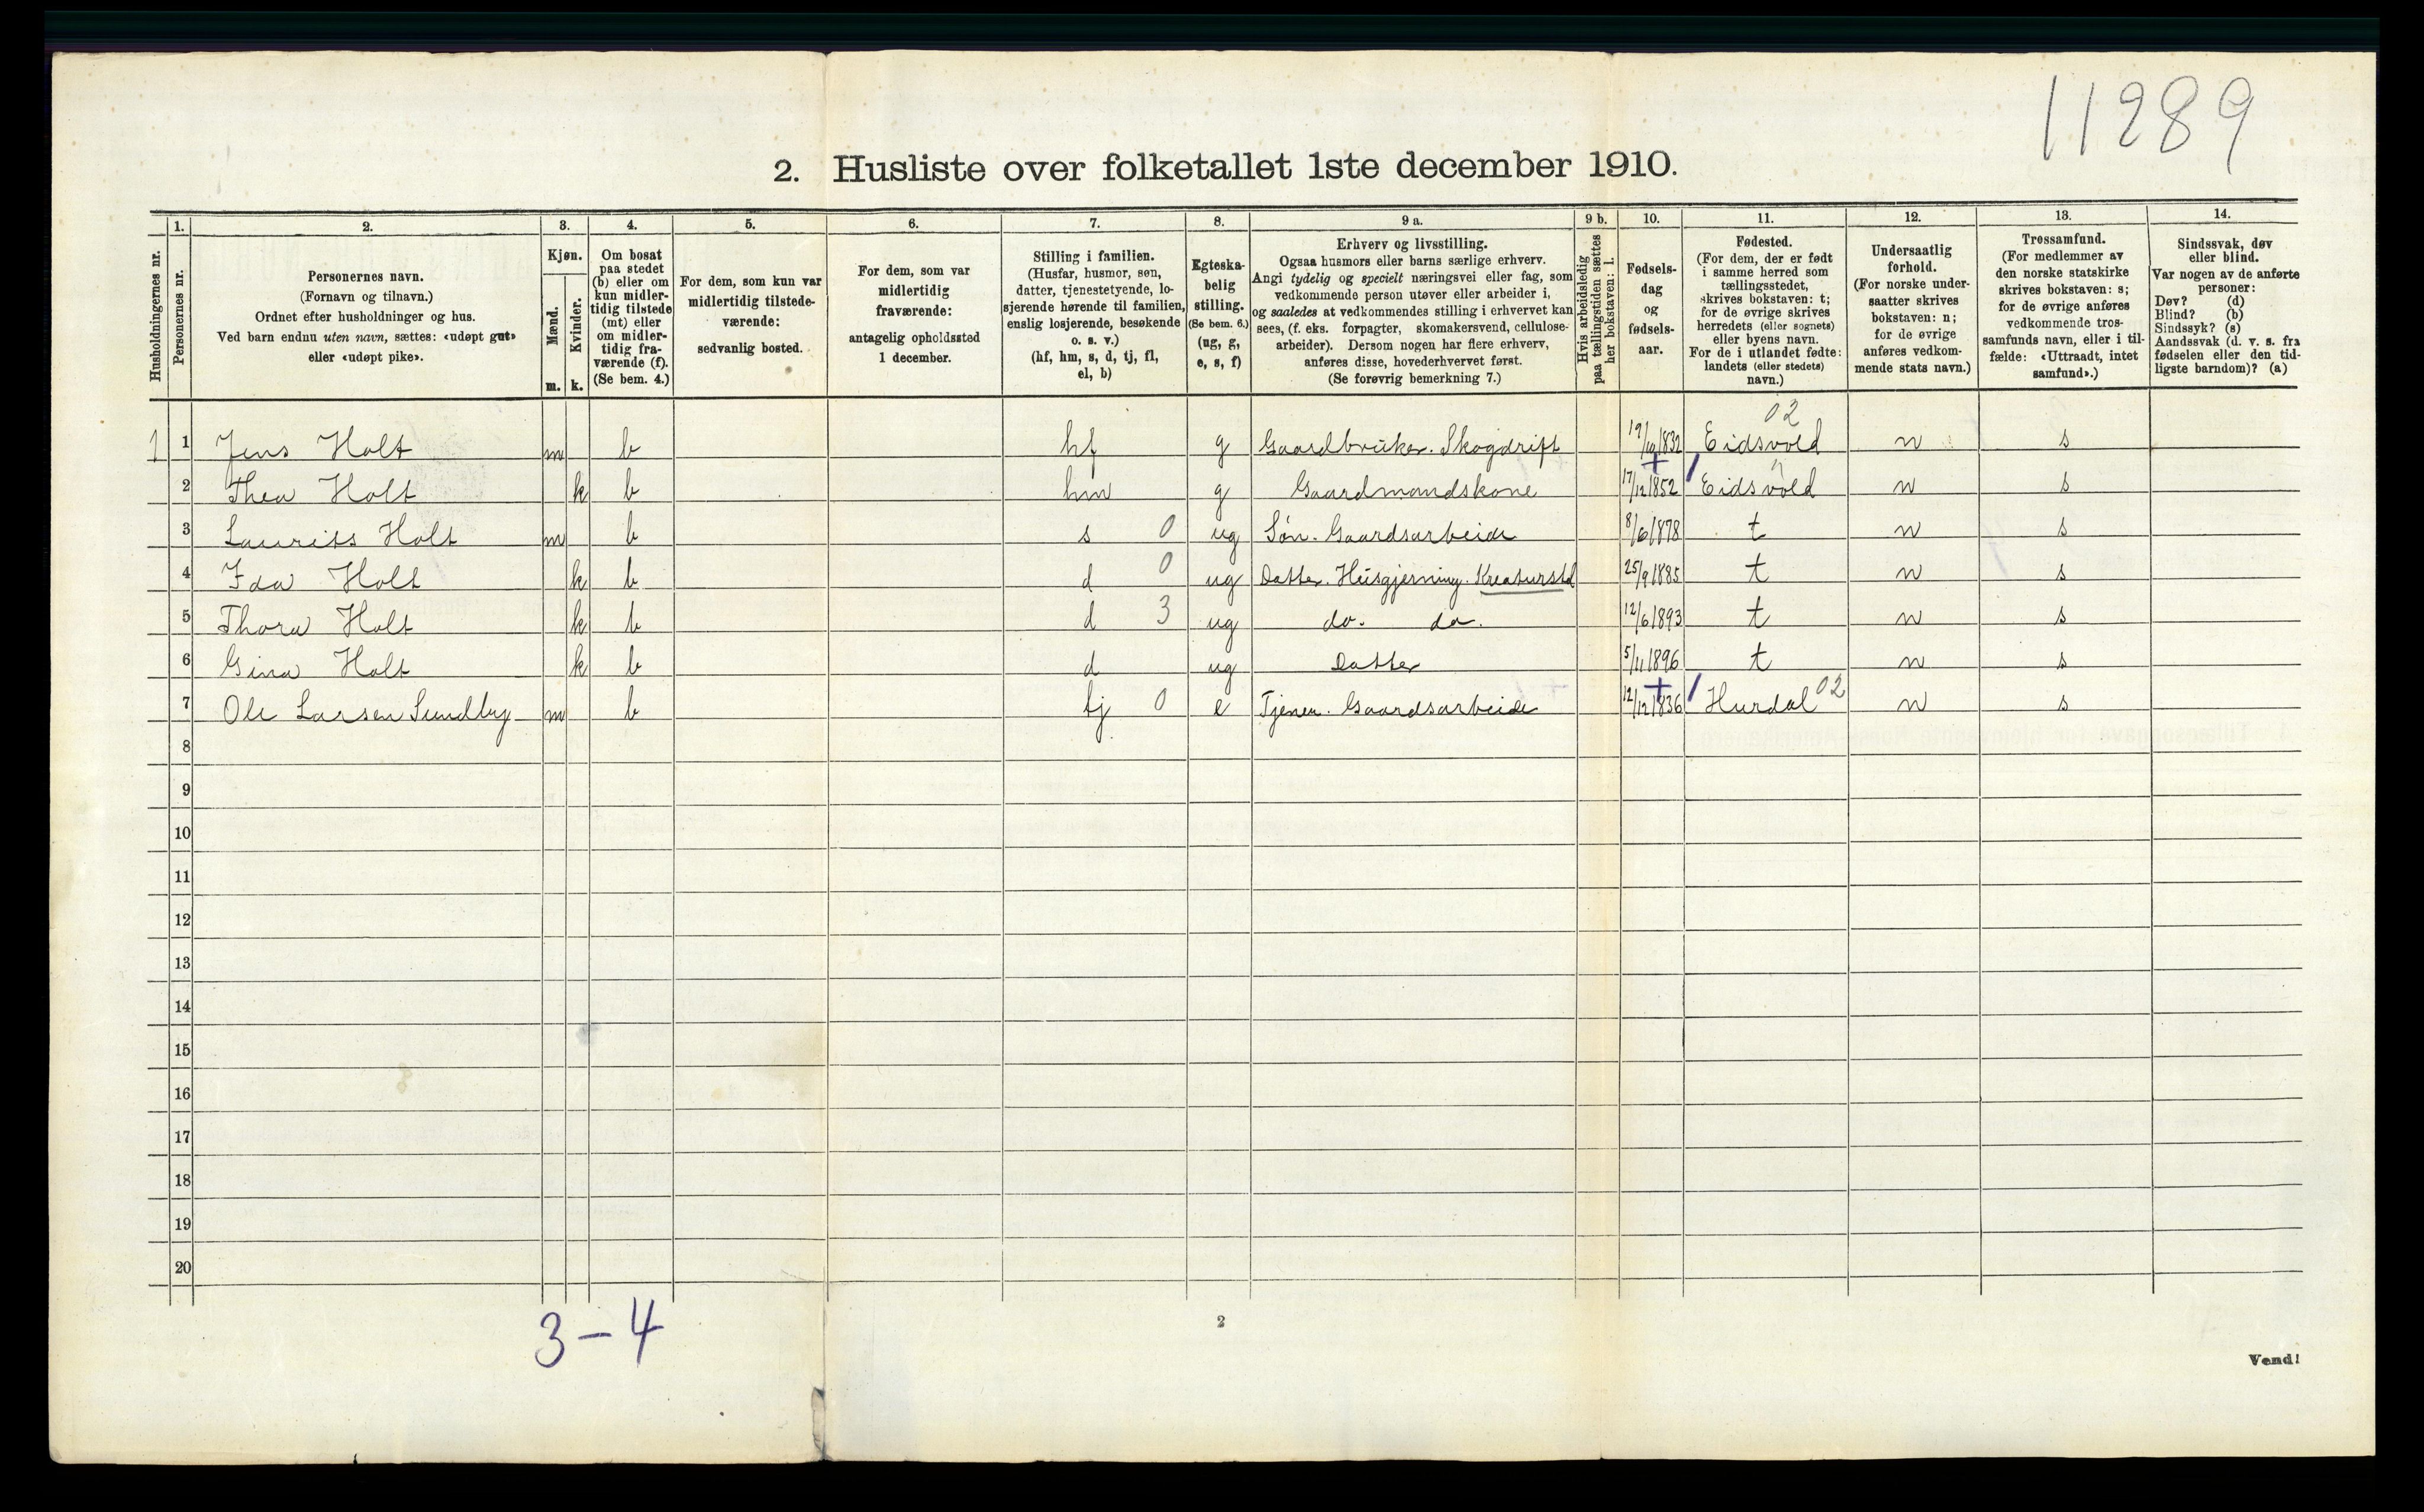 11289
2. Husliste over folketallet 1ste december 1910.
Husholdningernes nr.
1. Personernes nr.
2. Personernes navn.
(Fornavn og tilnavn.)
Ordnet efter husholdninger og hus.
Ved barn endnu uten navn, sættes: «udøpt gut»
eller «udøpt pike».
3. Kjøn.
Mænd. m.
Kvinder. k.
4. Om bosat
paa stedet
(b) eller om
kun midler-
tidig tilstede
(mt) eller
om midler-
tidig fra-
værende (f).
(Se bem. 4.)
5. For dem, som kun var
midlertidig tilstede-
værende:
sedvanlig bosted.
6. For dem, som var
midlertidig
fraværende:
antagelig opholdssted
1 december.
7. Stilling i familien.
(Husfar, husmor, søn,
datter, tjenestetyende, lo-
sjerende hørende til familien,
enslig losjerende, besøkende
o. s. v.)
(hf, hm, s, d, tj, fl,
el, b)
8. Egteska-
belig
stilling.
(Se bem. 6.)
(ug, g,
e, s, f)
9 a. Erhverv og livsstilling.
Ogsaa husmors eller barns særlige erhverv.
Angi tydelig og specielt næringsvei eller fag, som
vedkommende person utøver eller arbeider i,
og saaledes at vedkommendes stilling i erhvervet kan
sees, (f. eks. forpagter, skomakersvend, cellulose-
arbeider). Dersom nogen har flere erhverv,
anføres disse, hovederhvervet først.
(Se forøvrig bemerkning 7.)
9 b. Hvis arbeidsledig
paa tællingstiden sættes
her bokstaven: l.
10. Fødsels-
dag
og
fødsels-
aar.
11. Fødested.
(For dem, der er født
i samme herred som
tællingsstedet,
skrives bokstaven: t;
for de øvrige skrives
herredets (eller sognets)
eller byens navn.
For de i utlandet fødte:
landets (eller stedets)
navn.)
12. Undersaatlig
forhold.
(For norske under-
saatter skrives
bokstaven: n;
for de øvrige
anføres vedkom-
mende stats navn.)
13. Trossamfund.
(For medlemmer av
den norske statskirke
skrives bokstaven: s;
for de øvrige anføres
vedkommende tros-
samfunds navn, eller i til-
fælde: «Uttraadt, intet
samfund».)
14. Sindssvak, døv
eller blind.
Var nogen av de anførte
personer:
Døv? (d)
Blind? (b)
Sindssyk? (s)
Aandssvak (d. v. s. fra
fødselen eller den tid-
ligste barndom)? (a)
02
1 1 Jens Holt m b hf g Gaardbruker. Skogdrift 19/10 1832 Eidsvold n s
2 Thea Holt k b hm g Gaardmandskone 17/12 1852 Eidsvold n s
3 Laurits Holt m b s 0 ug Søn. Gaardsarbeide 8/6 1878 t n s
4 Ida Holt k b d 0 ug Datter. Husgjerning. Kreaturstel 25/9 1885 t n s
5 Thora Holt k b d 3 ug do. do. 12/6 1893 t n s
6 Gina Holt k b d ug Datter 5/11 1896 t n s
7 Ole Larsen Sundby m b tj 0 e Tjener. Gaardsarbeide 12/12 1836 Hurdal 02 n s
8
9
10
11
12
13
14
15
16
17
18
19
20
3 – 4
2
Vend!